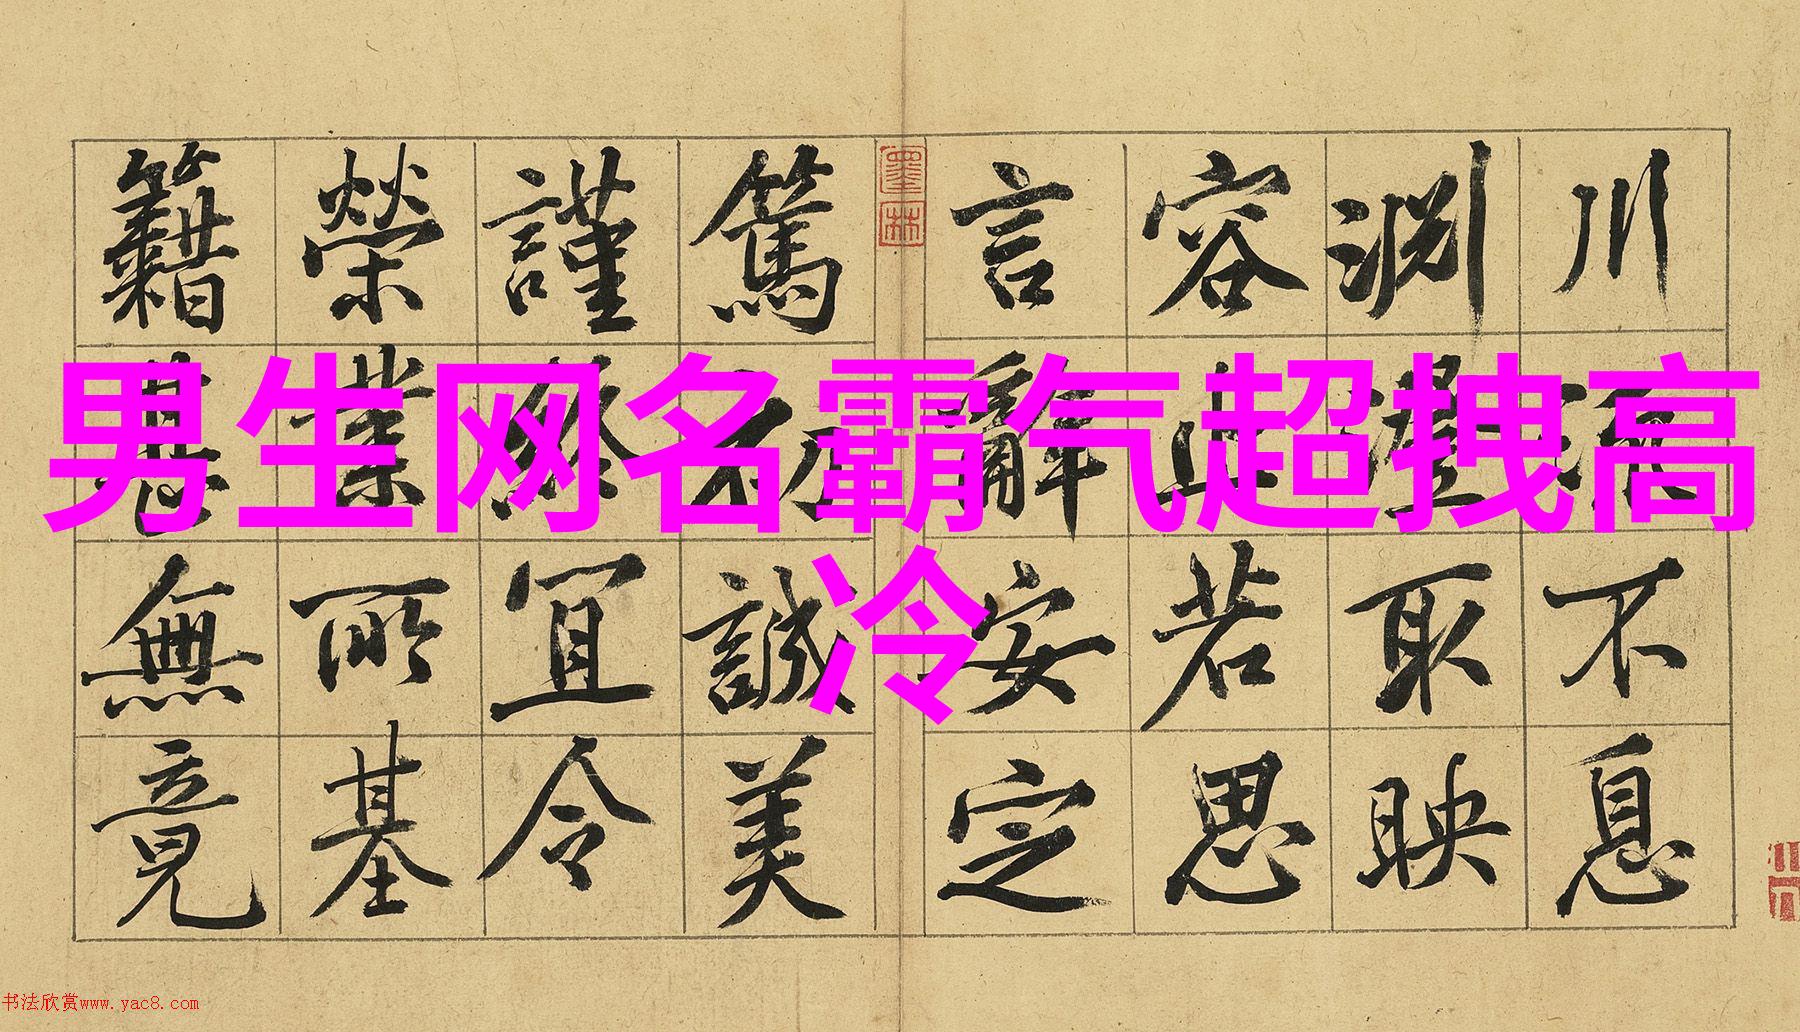 男生网名霸气超拽高
冷
川流不息
淵澄取映
容止若思
言辭安定
墨林
篤初誠美
謹終宜令
榮業所基
籍甚無竟
书法欣赏www.yac8.com